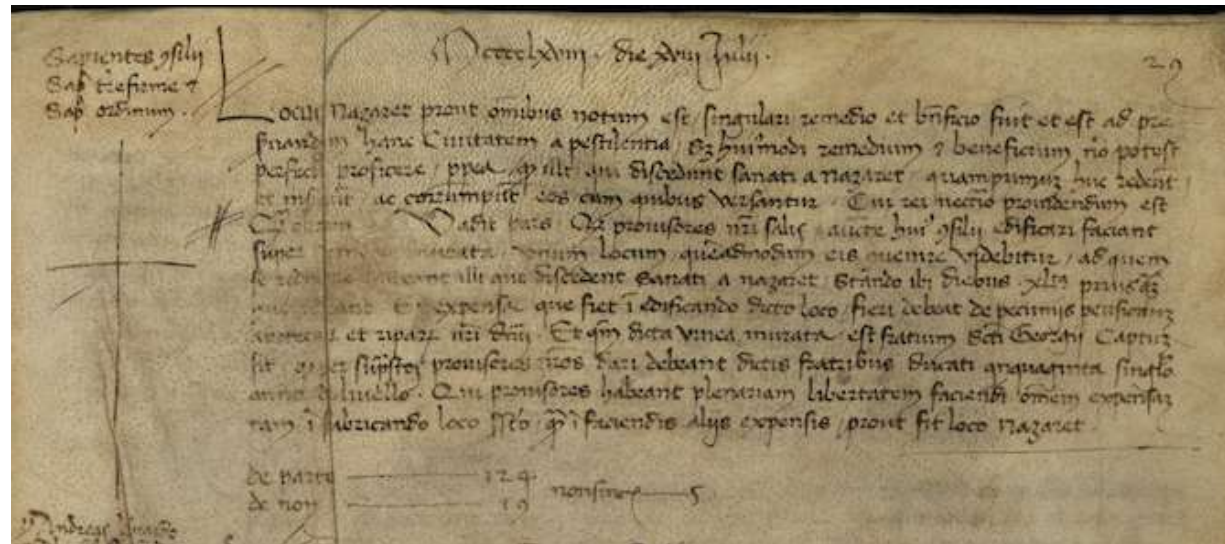 Sapientes ɔsilii
Sap t̄refirme ⁊
Sap ordinum .
Mcccclxviii . die xviii Julii .
29
Locus Nazaret prout om̄ibus notum est / singulari remedio et bn̄ficio fuit et est ad pre
hanc Civitatem a pestilentia / Sꝫ huiꝰmodi remedium ⁊ beneficium nō potest
perfici proficere / ꝓpea qꝫ illi qui discedunt sanati a Nazaret / quamprimum huc redeūt /
et ac corrumpūt eos cum quibus versantur . Cui rei necc̄io providendum est
Vadit pars Qꝫ provisores nr̄i salis auc̄te huiꝰ ɔsilii edificari faciant
super murata / unum locum / quēadmodum eis ɔvenire videbitur / ad quem
se illi qui discedent sanati a nazaret / stando ibi diebus xlta priusqꝫ
expensa que fiet ī edificando dicto loco / fieri debeat de pecuniis
et ripar nr̄i . Et qm̄ dicta vinea murata est fratrum Sc̄ti Georgii Captum
sit provisores nr̄os dari debeant dictis fratribus ducati qnquaginta singl̄o
anno de livello . Qui provisores habeant plenariam libertatem faciendi om̄em expensaꝫ
tam ī fabricando loco qꝫ ī faciendis aliis expensis / prout fit loco Nazaret .
de parte ——— 124
de non ——— 19
non sinceri ——— 5
Andreas